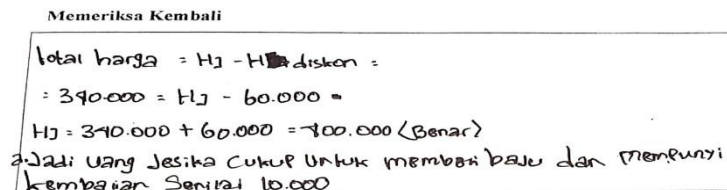 Memeriksa Kembali
Total harga = HJ - H diskon =
= 340.000 = HJ - 60.000 =
HJ = 340.000 + 60.000 = 400.000 (Benar)
a. Jadi uang Jesika cukup untuk membeli baju dan mempunyi
kembalian Senilai 10.000